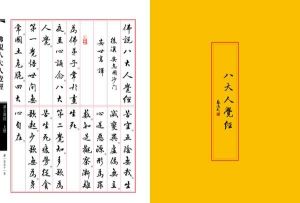 佛說八大人覺經
後漢安息國沙門
安世高譯
為佛弟子常於晝
夜至心誦念八大
人覺
第一覺悟世間無
常國土危脆四大
苦空五陰無我生
滅變異虛偽無主
心是惡源形為罪
藪如是觀察漸離
生死
第二覺知多欲為
苦生死疲勞從貪
欲起少欲無為身
心自在
八大人覺經